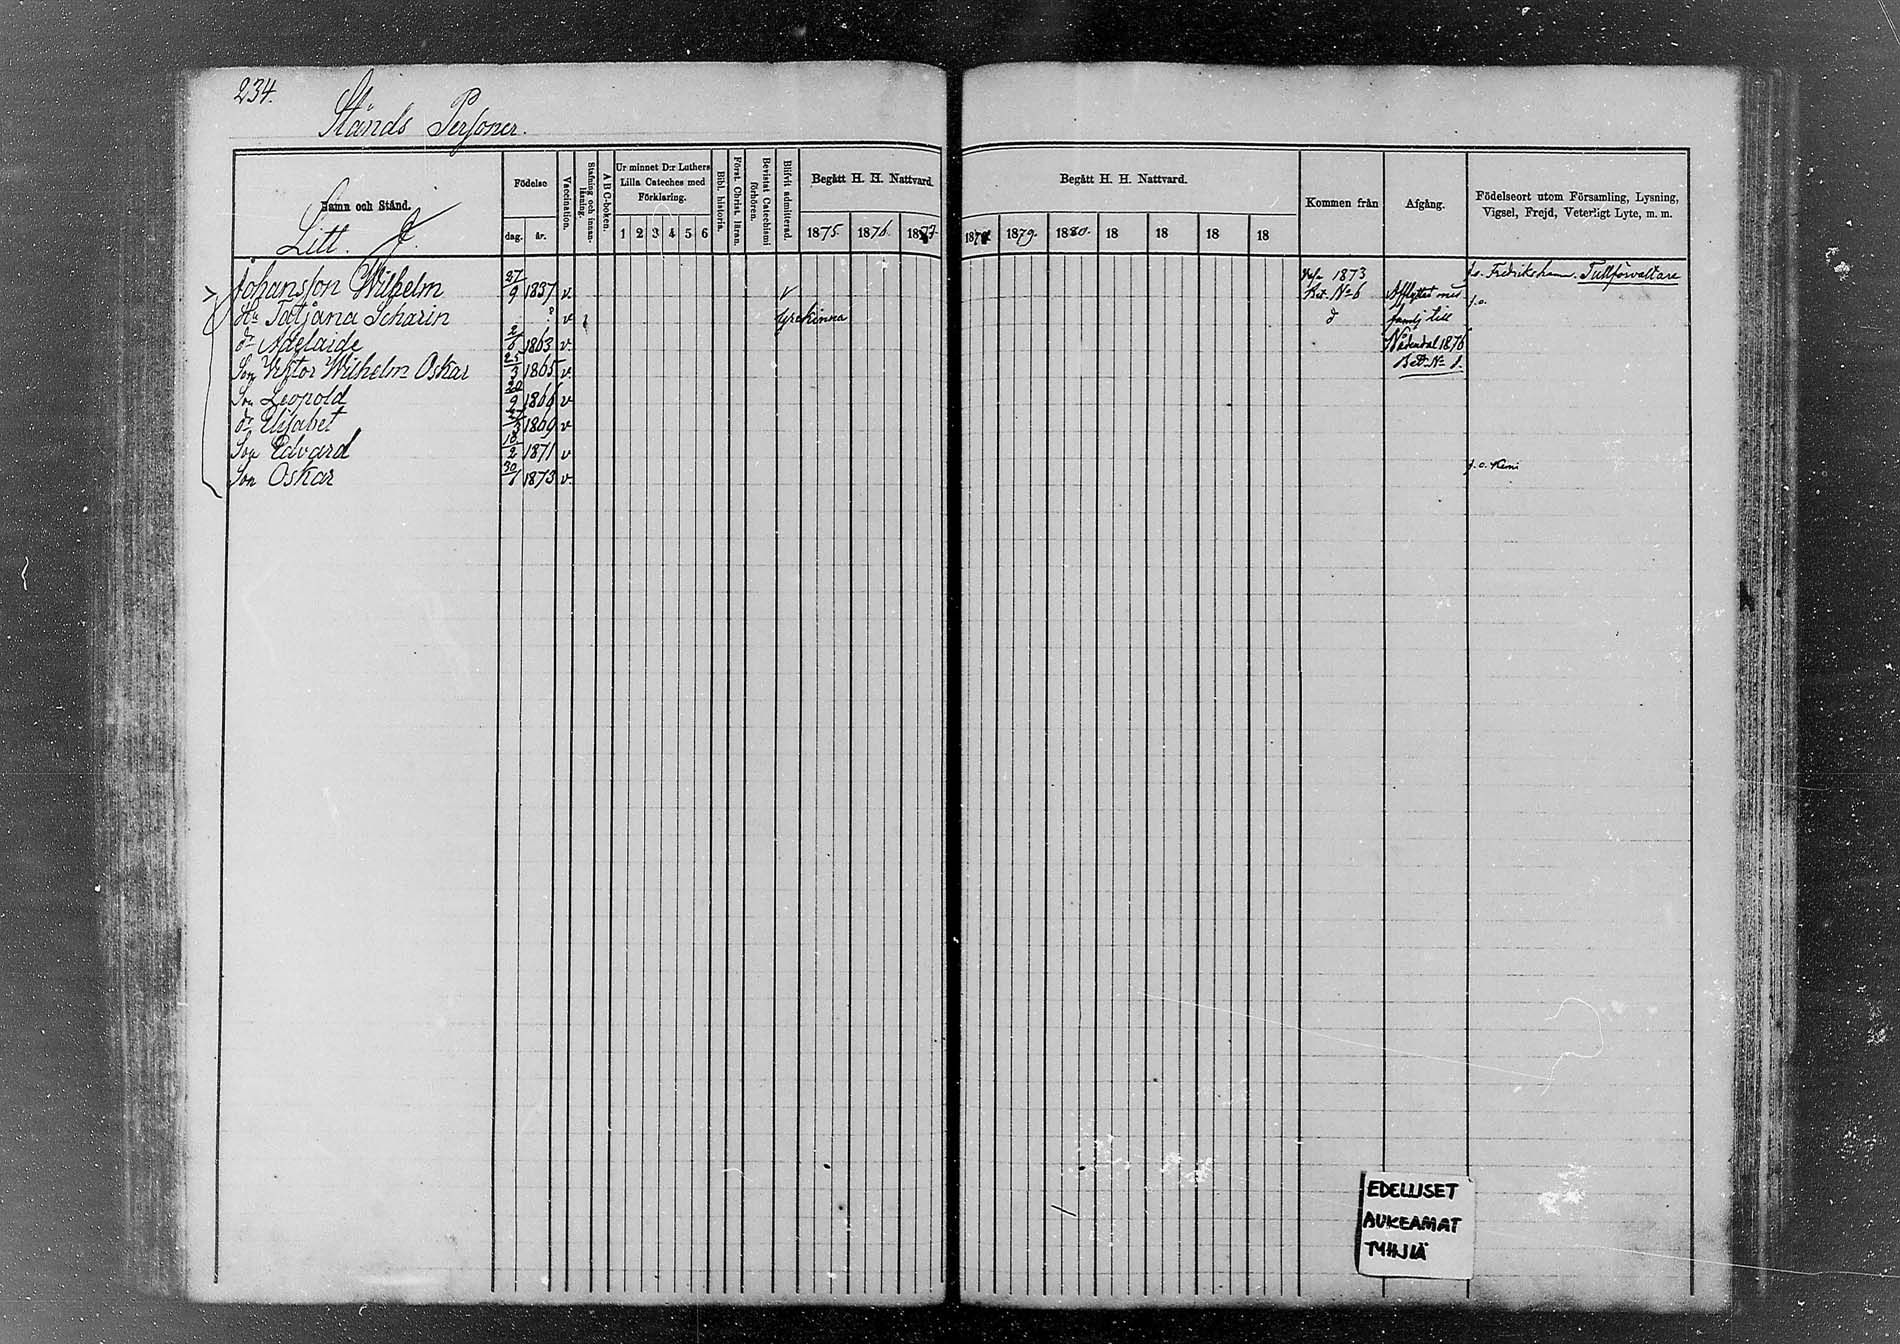 234.
Stånds Personer.
Namn och Stånd.
Litt. J.
Födelse
dag. år.
Vaccination.
Stafning och innanläsning.
A B C-boken.
Ur minnet D:r Luthers Lilla Cateches med Förklaring.
1 2 3 4 5 6
Bibl. historia.
Först. Christ. läran.
Bevistat Catechismi förhören.
Blifvit admitterad.
Begått H. H. Nattvard.
1875. 1876. 1877.
Begått H. H. Nattvard.
1878 1879. 1880. 18 18 18 18
Kommen från
Afgång.
Födelseort utom Församling, Lysning, Vigsel, Frejd, Veterligt Lyte, m. m.
Johansson Wilhelm 27/9 1837 v. v 1873 Bet. No 6 Afflyttat med f.o. Fredrikshamn. Tullförvaltare
Hu Tatjana Scharin ? v. Grekinna d familj till f.o.
dr Adelaide 1863 v. Nådendal 1876
Son Viktor Wilhelm Oskar 25/3 1865 v. Bet. No 1.
Son Leopold 20/9 1866 v.
dr Elisabet 1869 v.
Son Edvard 18/2 1871 v
Son Oskar 1873 v. f.o. Kemi
EDELLISET
AUKEAMAT
TYHJIÄ